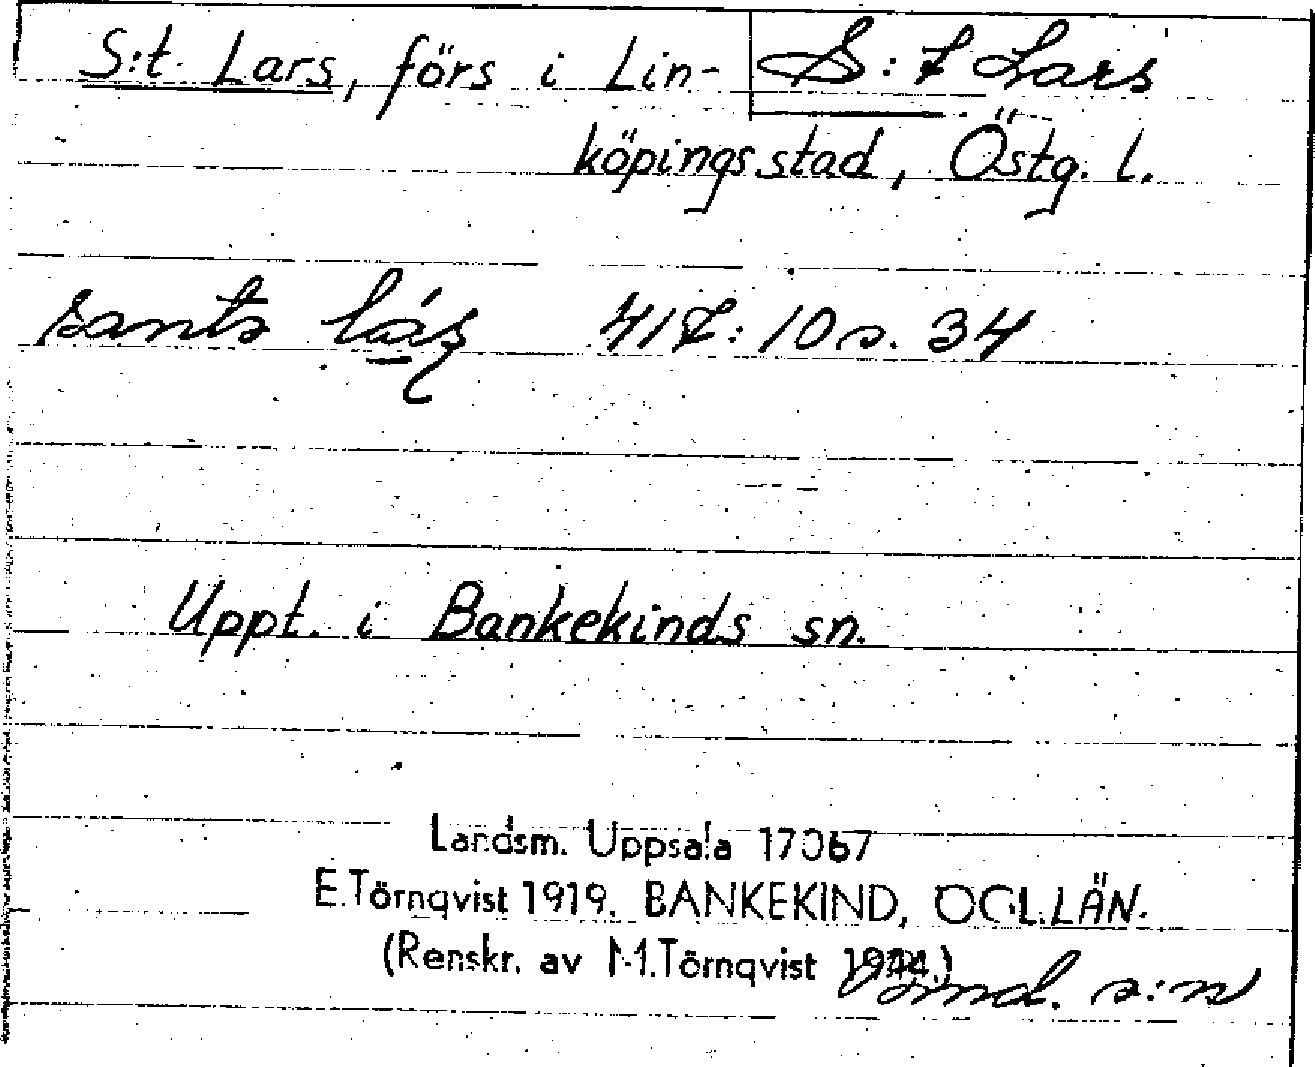 S:t. Lars, förs i Lin- S:t Lars
köpings stad, Östg. l.
sants láʂ 417:10 s. 34
Uppt. i Bankekinds sn.
Landsm. Uppsala 17067
E.Törnqvist 1919. BANKEKIND, ÖGL.LÄN.
(Renskr. av M.Törnqvist 1944.)
s:n